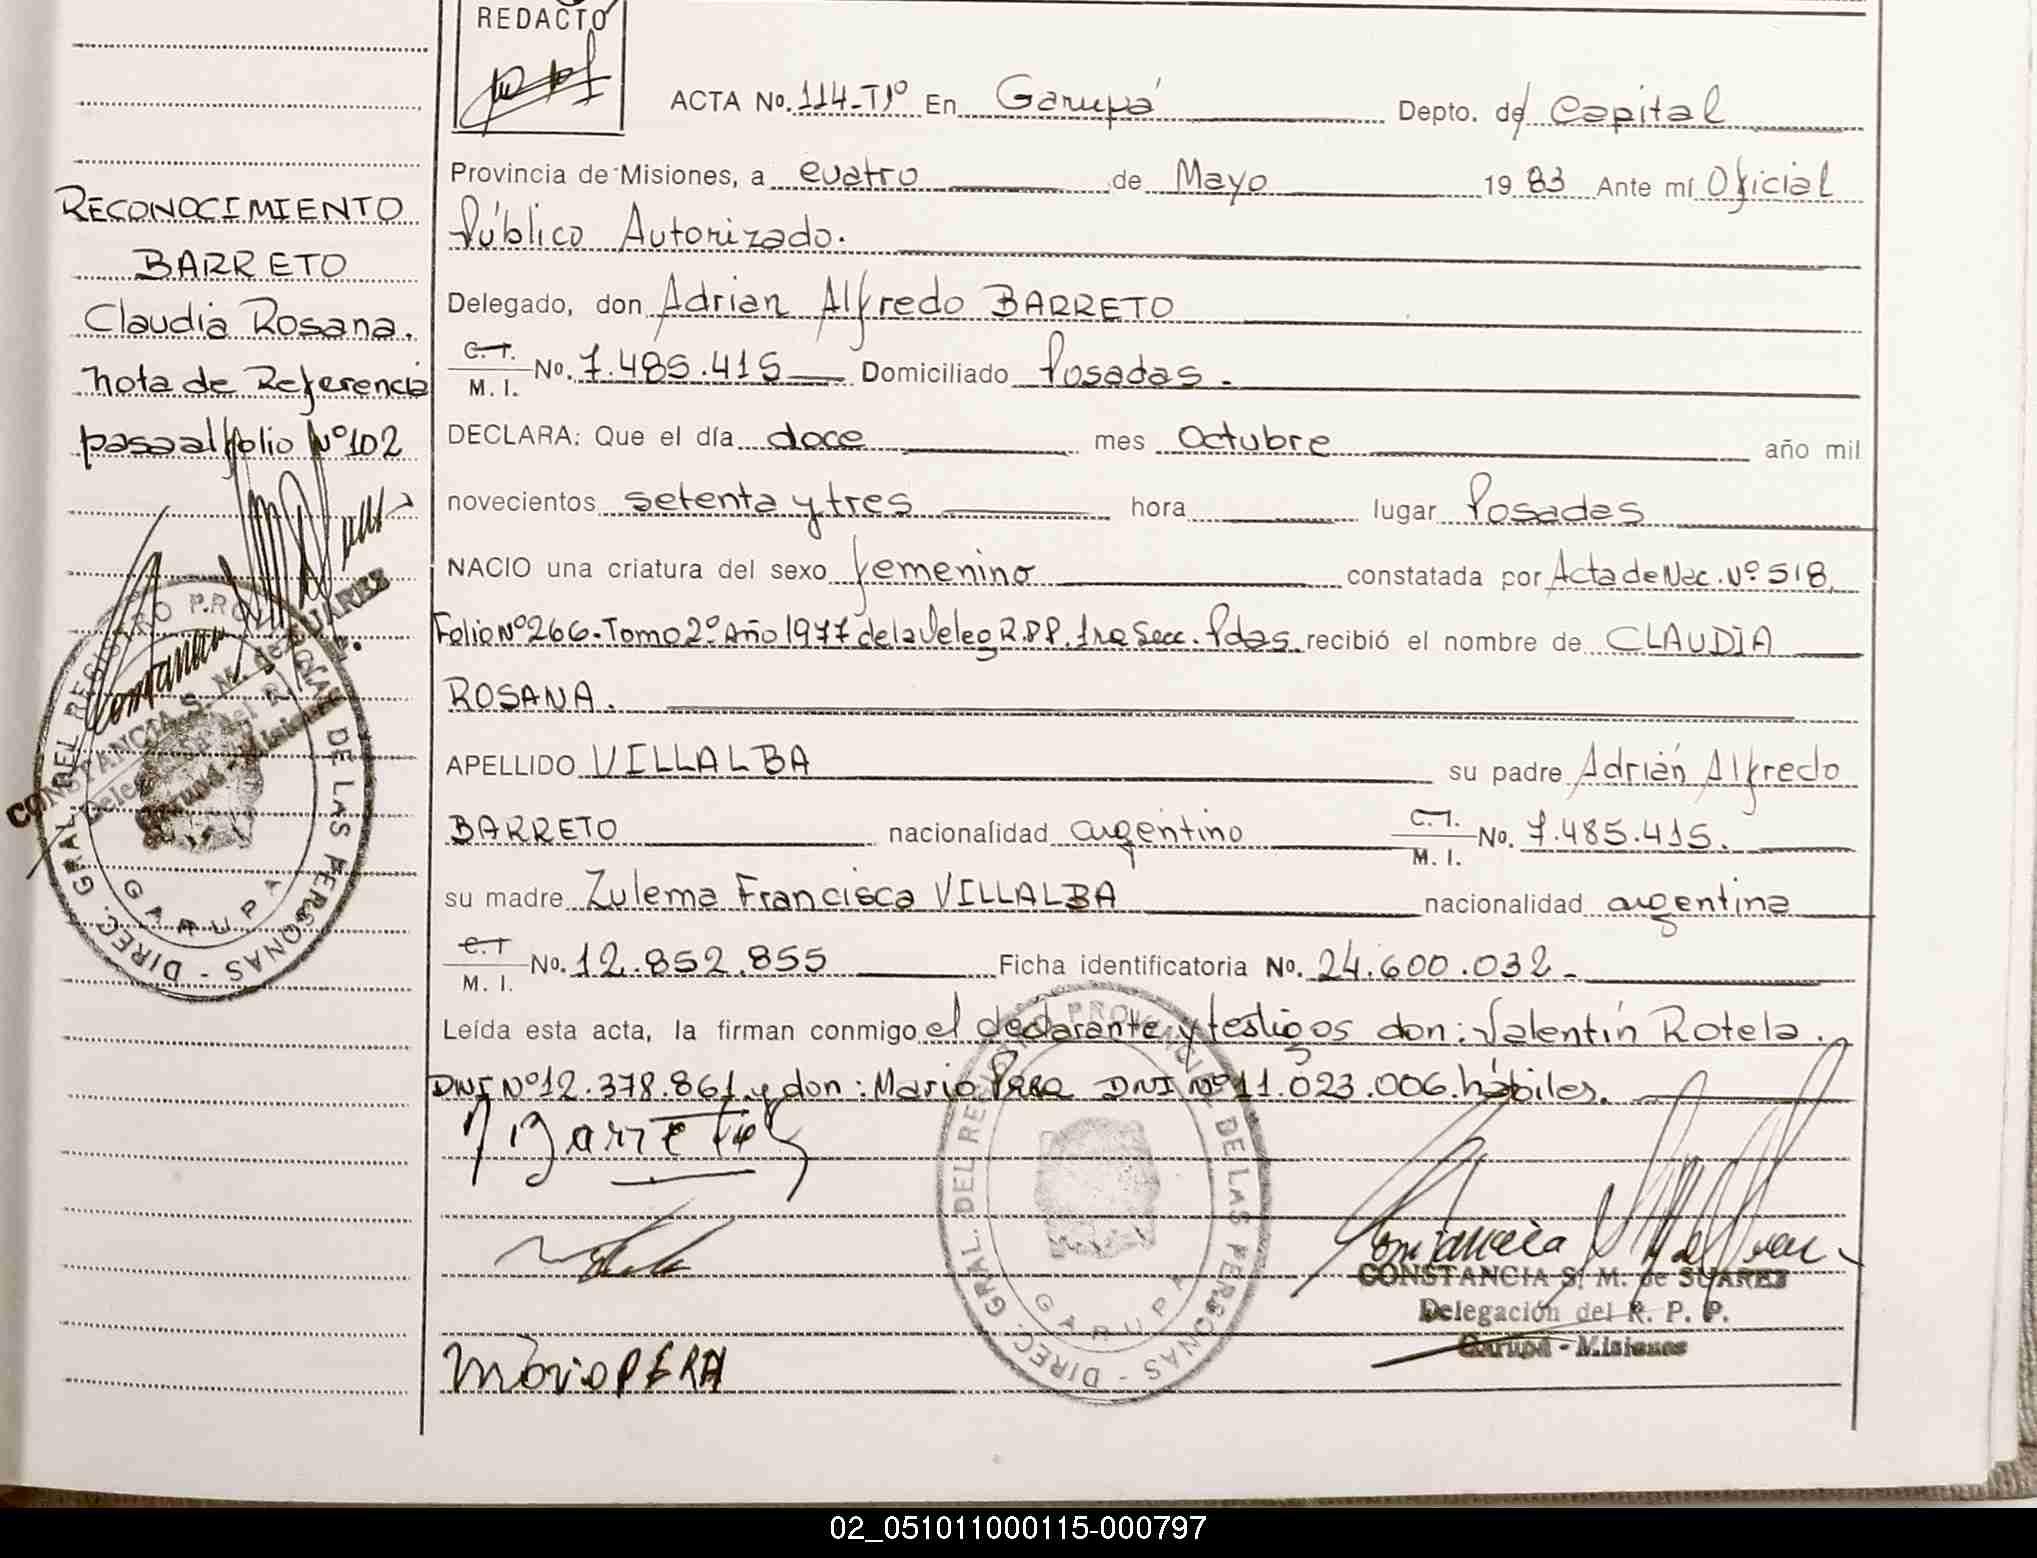 REDACTO
ACTA No. 114-Tº1º En Garupá Depto. de Capital
Provincia de Misiones, a cuatro de Mayo 1983 Ante mí Oficial
Público Autorizado.
Delegado, don Adrian Alfredo BARRETO
C.I. M. I. No. 7.485.415 Domiciliado Posadas.
DECLARA: Que el día doce mes Octubre año mil
novecientos setenta y tres hora lugar Posadas
NACIO una criatura del sexo femenino constatada por Acta de Nac. Nº 518,
Folio Nº 266-Tomo 2º Año 1977 de la Deleg R.P.P. 1ra Secc. Pdas. recibió el nombre de CLAUDIA
ROSANA.
APELLIDO VILLALBA su padre Adrián Alfredo
BARRETO nacionalidad argentino C.I. M. I. No. 7.485.415.
su madre Zulema Francisca VILLALBA nacionalidad argentina
C.I M. I. No. 12.852.855 Ficha identificatoria No. 24.600.032-
Leída esta acta, la firman conmigo el declarante y testigos don: Valentín Rotela.
DNI Nº 12.378.861 y don: Mario Pera DNI Nº 11.023.006. hábiles.
Barreto
Mario PERA
CONSTANCIA S. M. de SUAREZ
Delegación del R. P. P.
Garupá - Misiones
DIREC. GRAL. DEL REGISTRO PROVINCIAL DE LAS PERSONAS
GARUPA
RECONOCIMIENTO
BARRETO
Claudia Rosana.
nota de Referencia
pasa al folio Nº 102
CONSTANCIA S. M. de SUAREZ
Delegación del R. P. P.
Garupá - Misiones
DIREC. GRAL. DEL REGISTRO PROVINCIAL DE LAS PERSONAS
GARUPA
02_051011000115-000797